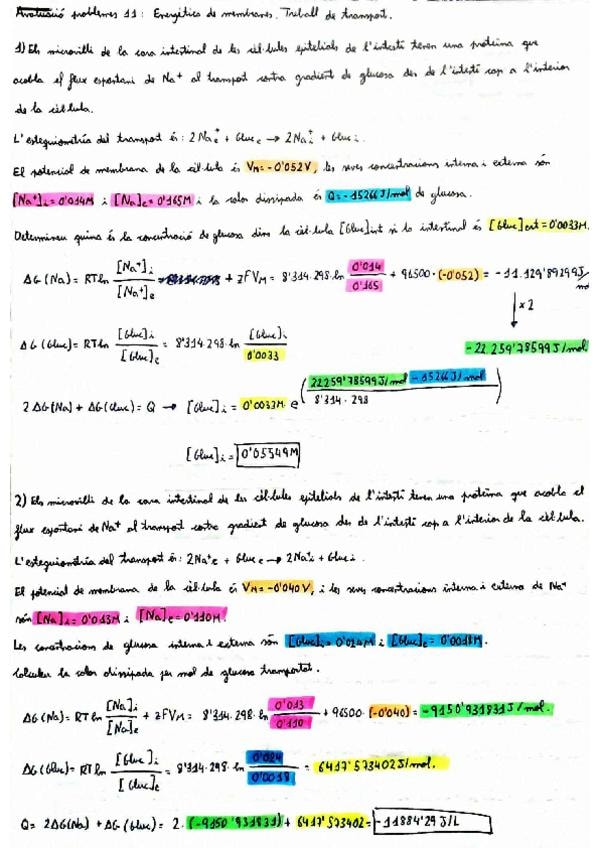 Avaluació problemes 11: Energètica de membranes. Treball de transport.
1) Els microvilli de la cara intestinal de les cèl·lules epitelials de l'intestí tenen una proteïna que
acobla el flux espontani de Na⁺ al transport contra gradient de glucosa des de l'intestí cap a l'interior
de la cèl·lula.
L'estequiometria del transport és: 2Na⁺e + Gluc e → 2Na⁺i + Gluc i.
El potencial de membrana de la cèl·lula és VM = -0'052V, les seves concentracions interna i externa són
[Na⁺]i = 0'014M i [Na]e = 0'165M i la calor dissipada és Q = -15266 J/mol de glucosa.
Determineu quina és la concentració de glucosa dins la cèl·lula [Gluc]int si la intestinal és [Gluc]ext = 0'0033M.
ΔG(Na) = RT ln [Na⁺]i / [Na⁺]e + zFVM = 8'314·298·ln 0'014 / 0'165 + 96500·(-0'052) = -11.129'89299J/
x2
ΔG(Gluc) = RT ln [Gluc]i / [Gluc]e = 8'314·298·ln [Gluc]i / 0'0033
-22259'78599 J/mol.
2ΔG(Na) + ΔG(Gluc) = Q → [Gluc]i = 0'0033M e ( 22259'78599J/mol - 15266J/mol / 8'314·298 )
[Gluc]i = 0'05549M
2) Els microvilli de la cara intestinal de les cèl·lules epitelials de l'intestí tenen una proteïna que acobla el
flux espontani de Na⁺ al transport contra gradient de glucosa des de l'intestí cap a l'interior de la cèl·lula.
L'estequiometria del transport és: 2Na⁺e + Gluc e → 2Na⁺i + Gluc i.
El potencial de membrana de la cèl·lula és VM = -0'040V, i les seves concentracions interna i externa de Na⁺
són [Na]i = 0'013M i [Na]e = 0'110M.
Les concentracions de glucosa interna i externa són [Gluc]i = 0'024M i [Gluc]e = 0'0018M.
Calculeu la calor dissipada per mol de glucosa transportat.
ΔG(Na) = RT ln [Na]i / [Na]e + zFVM = 8'314·298·ln 0'013 / 0'110 + 96500·(-0'040) = -9150'931831J/mol.
ΔG(Gluc) = RT ln [Gluc]i / [Gluc]e = 8'314·298·ln 0'024 / 0'0018 = 6417'573402J/mol.
Q = 2ΔG(Na) + ΔG(Gluc) = 2·(-9150'931831) + 6417'573402 = -11884'29 J/L